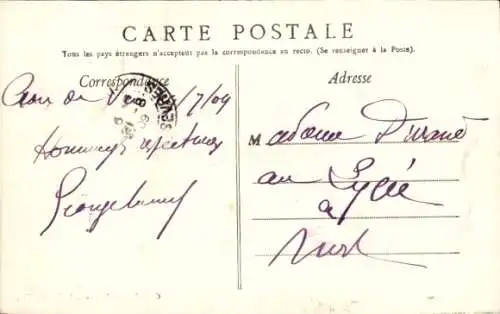 CARTE POSTALE
Tous les pays étrangers n'acceptent pas la correspondance au recto. (Se renseigner à la Poste).
Correspondance
/7/09
Hommages respectueux
Adresse
Madame Durand
au Lycée
à
Niort